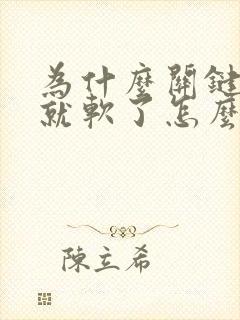 為什麼關鍵
就軟了怎麼
陳立希